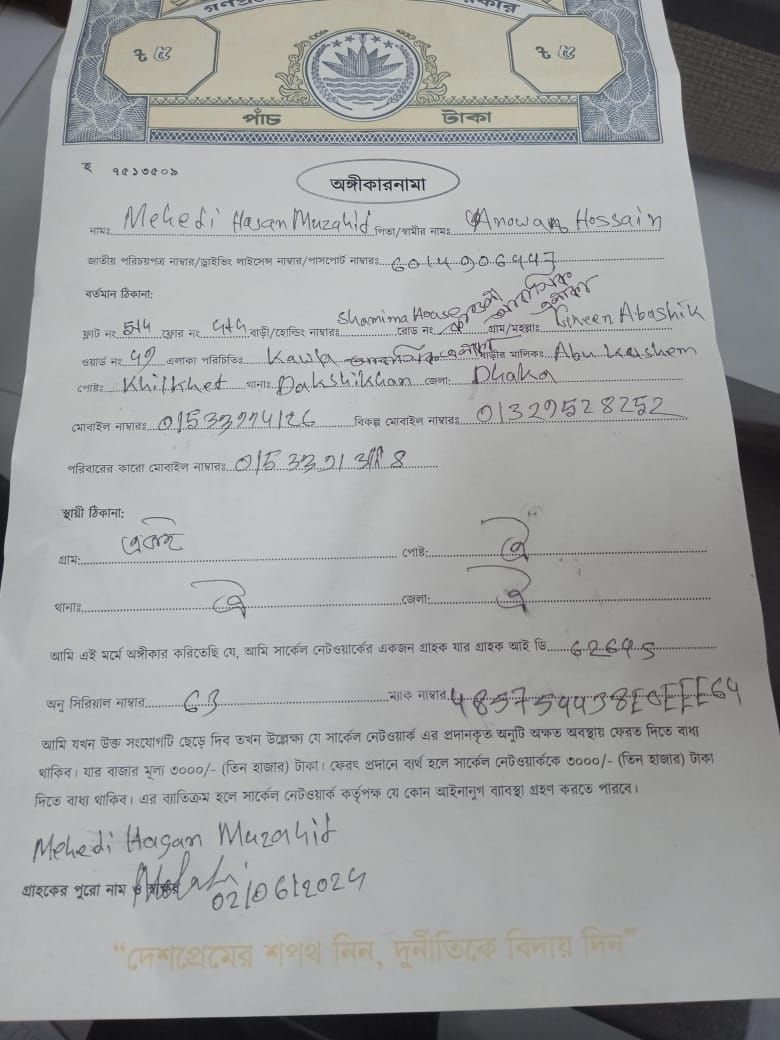 ট ৫ ট ৫
পাঁচ টাকা
ট ৭৫১৩৫০৯
অঙ্গীকারনামা
নামঃ Mehedi Hasan Muzahid পিতা/স্বামীর নামঃ Anowar Hossain
জাতীয় পরিচয়পত্র নাম্বার/ড্রাইভিং লাইসেন্স নাম্বার/পাসপোর্ট নাম্বারঃ
বর্তমান ঠিকানা:
ফ্লাট নং 5th ফ্লোর নং বাড়ী/হোল্ডিং নাম্বারঃ Shamima House রোড নং গ্রাম/মহল্লাঃ Green Abashik
ওয়ার্ড নং 49 এলাকা পরিচিতিঃ Kawla বাড়ীর মালিকঃ Abu Kashem
পোষ্টঃ Khilkhet থানাঃ Dakshikhan জেলা: Dhaka
মোবাইল নাম্বারঃ বিকল্প মোবাইল নাম্বারঃ 01329528252
পরিবারের কারো মোবাইল নাম্বারঃ
স্থায়ী ঠিকানা:
গ্রাম: একই পোষ্ট: ঐ
থানাঃ ঐ জেলা: ঐ
আমি এই মর্মে অঙ্গীকার করিতেছি যে, আমি সার্কেল নেটওয়ার্কের একজন গ্রাহক যার গ্রাহক আই ডি 62645
অনু সিরিয়াল নাম্বার 63 ম্যাক নাম্বার
আমি যখন উক্ত সংযোগটি ছেড়ে দিব তখন উল্লেক্ষ্য যে সার্কেল নেটওয়ার্ক এর প্রদানকৃত অনুটি অক্ষত অবস্থায় ফেরত দিতে বাধ্য
থাকিব। যার বাজার মূল্য ৩০০০/- (তিন হাজার) টাকা। ফেরৎ প্রদানে ব্যর্থ হলে সার্কেল নেটওয়ার্ককে ৩০০০/- (তিন হাজার) টাকা
দিতে বাধ্য থাকিব। এর ব্যাতিক্রম হলে সার্কেল নেটওয়ার্ক কর্তৃপক্ষ যে কোন আইনানুগ ব্যাবস্থা গ্রহন করতে পারবে।
Mehedi Hasan Muzahid
গ্রাহকের পুরো নাম ও
02/06/2024
“দেশপ্রেমের শপথ নিন, দুর্নীতিকে বিদায় দিন”